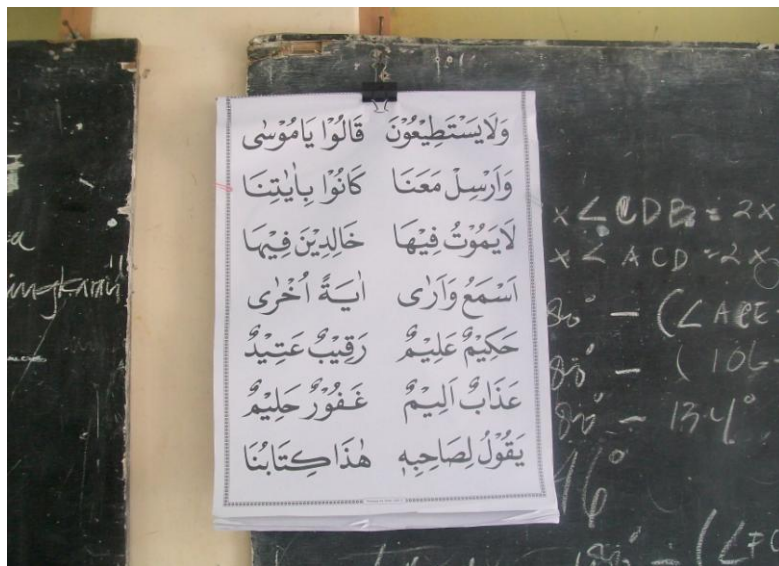 وَلَا يَسْتَطِيْعُوْنَ قَالُوْا يَامُوْسٰى
وَاَرْسِلْ مَعَنَا كَانُوْا بِاٰيٰتِنَا
لَايَمُوْتُ فِيْهَا خَالِدِيْنَ فِيْهَا
اَسْمَعُ وَاَرٰى اٰيَةً اُخْرٰى
حَكِيْمٌ عَلِيْمٌ رَقِيْبٌ عَتِيْدٌ
عَذَابٌ اَلِيْمٌ غَفُوْرٌ حَلِيْمٌ
يَقُوْلُ لِصَاحِبِهٖ هٰذَا كِتَابُنَا
x ∠ CDB = 2x
x < ACD = 2x
80° − (∠
80° − ( 106
80° − 134°
46°
180° − (∠